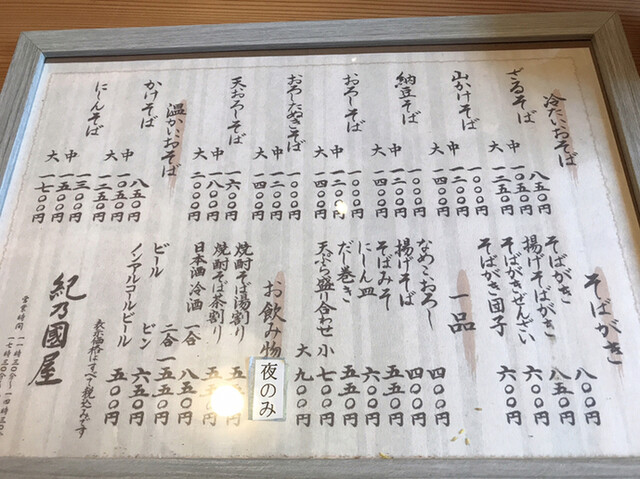 冷たいおそば
ざるそば 八五〇円
中 一〇五〇円
大 一二五〇円
山かけそば 一〇〇〇円
中 一二〇〇円
大 一四〇〇円
納豆そば 一〇〇〇円
中 一二〇〇円
大 一四〇〇円
おろしそば 一〇〇〇円
中 一二〇〇円
大 一四〇〇円
おろしたぬきそば 一〇〇〇円
中 一二〇〇円
大 一四〇〇円
天おろしそば 一六〇〇円
中 一八〇〇円
大 二〇〇〇円
温かいおそば
かけそば 八五〇円
中 一〇五〇円
大 一二五〇円
にしんそば 一三〇〇円
中 一五〇〇円
大 一七〇〇円
そばがき
そばがき 八〇〇円
揚げそばがき 八五〇円
そばがきぜんざい 六〇〇円
そばがき団子 六〇〇円
一品
なめこおろし 四〇〇円
揚げそば 四〇〇円
そばみそ 五五〇円
にしん皿 六〇〇円
だし巻き 五五〇円
天ぷら盛り合わせ 小 七〇〇円
大 九〇〇円
お飲み物 夜のみ
焼酎そば湯割り
焼酎そば茶割り
日本酒 冷酒 一合 八五〇円
二合 一五五〇円
ビール ビン 六五〇円
ノンアルコールビール 五五〇円
表示価格はすべて税込みです
紀乃國屋
営業時間 一一時三〇分〜一四時三〇分
一七時三〇分〜